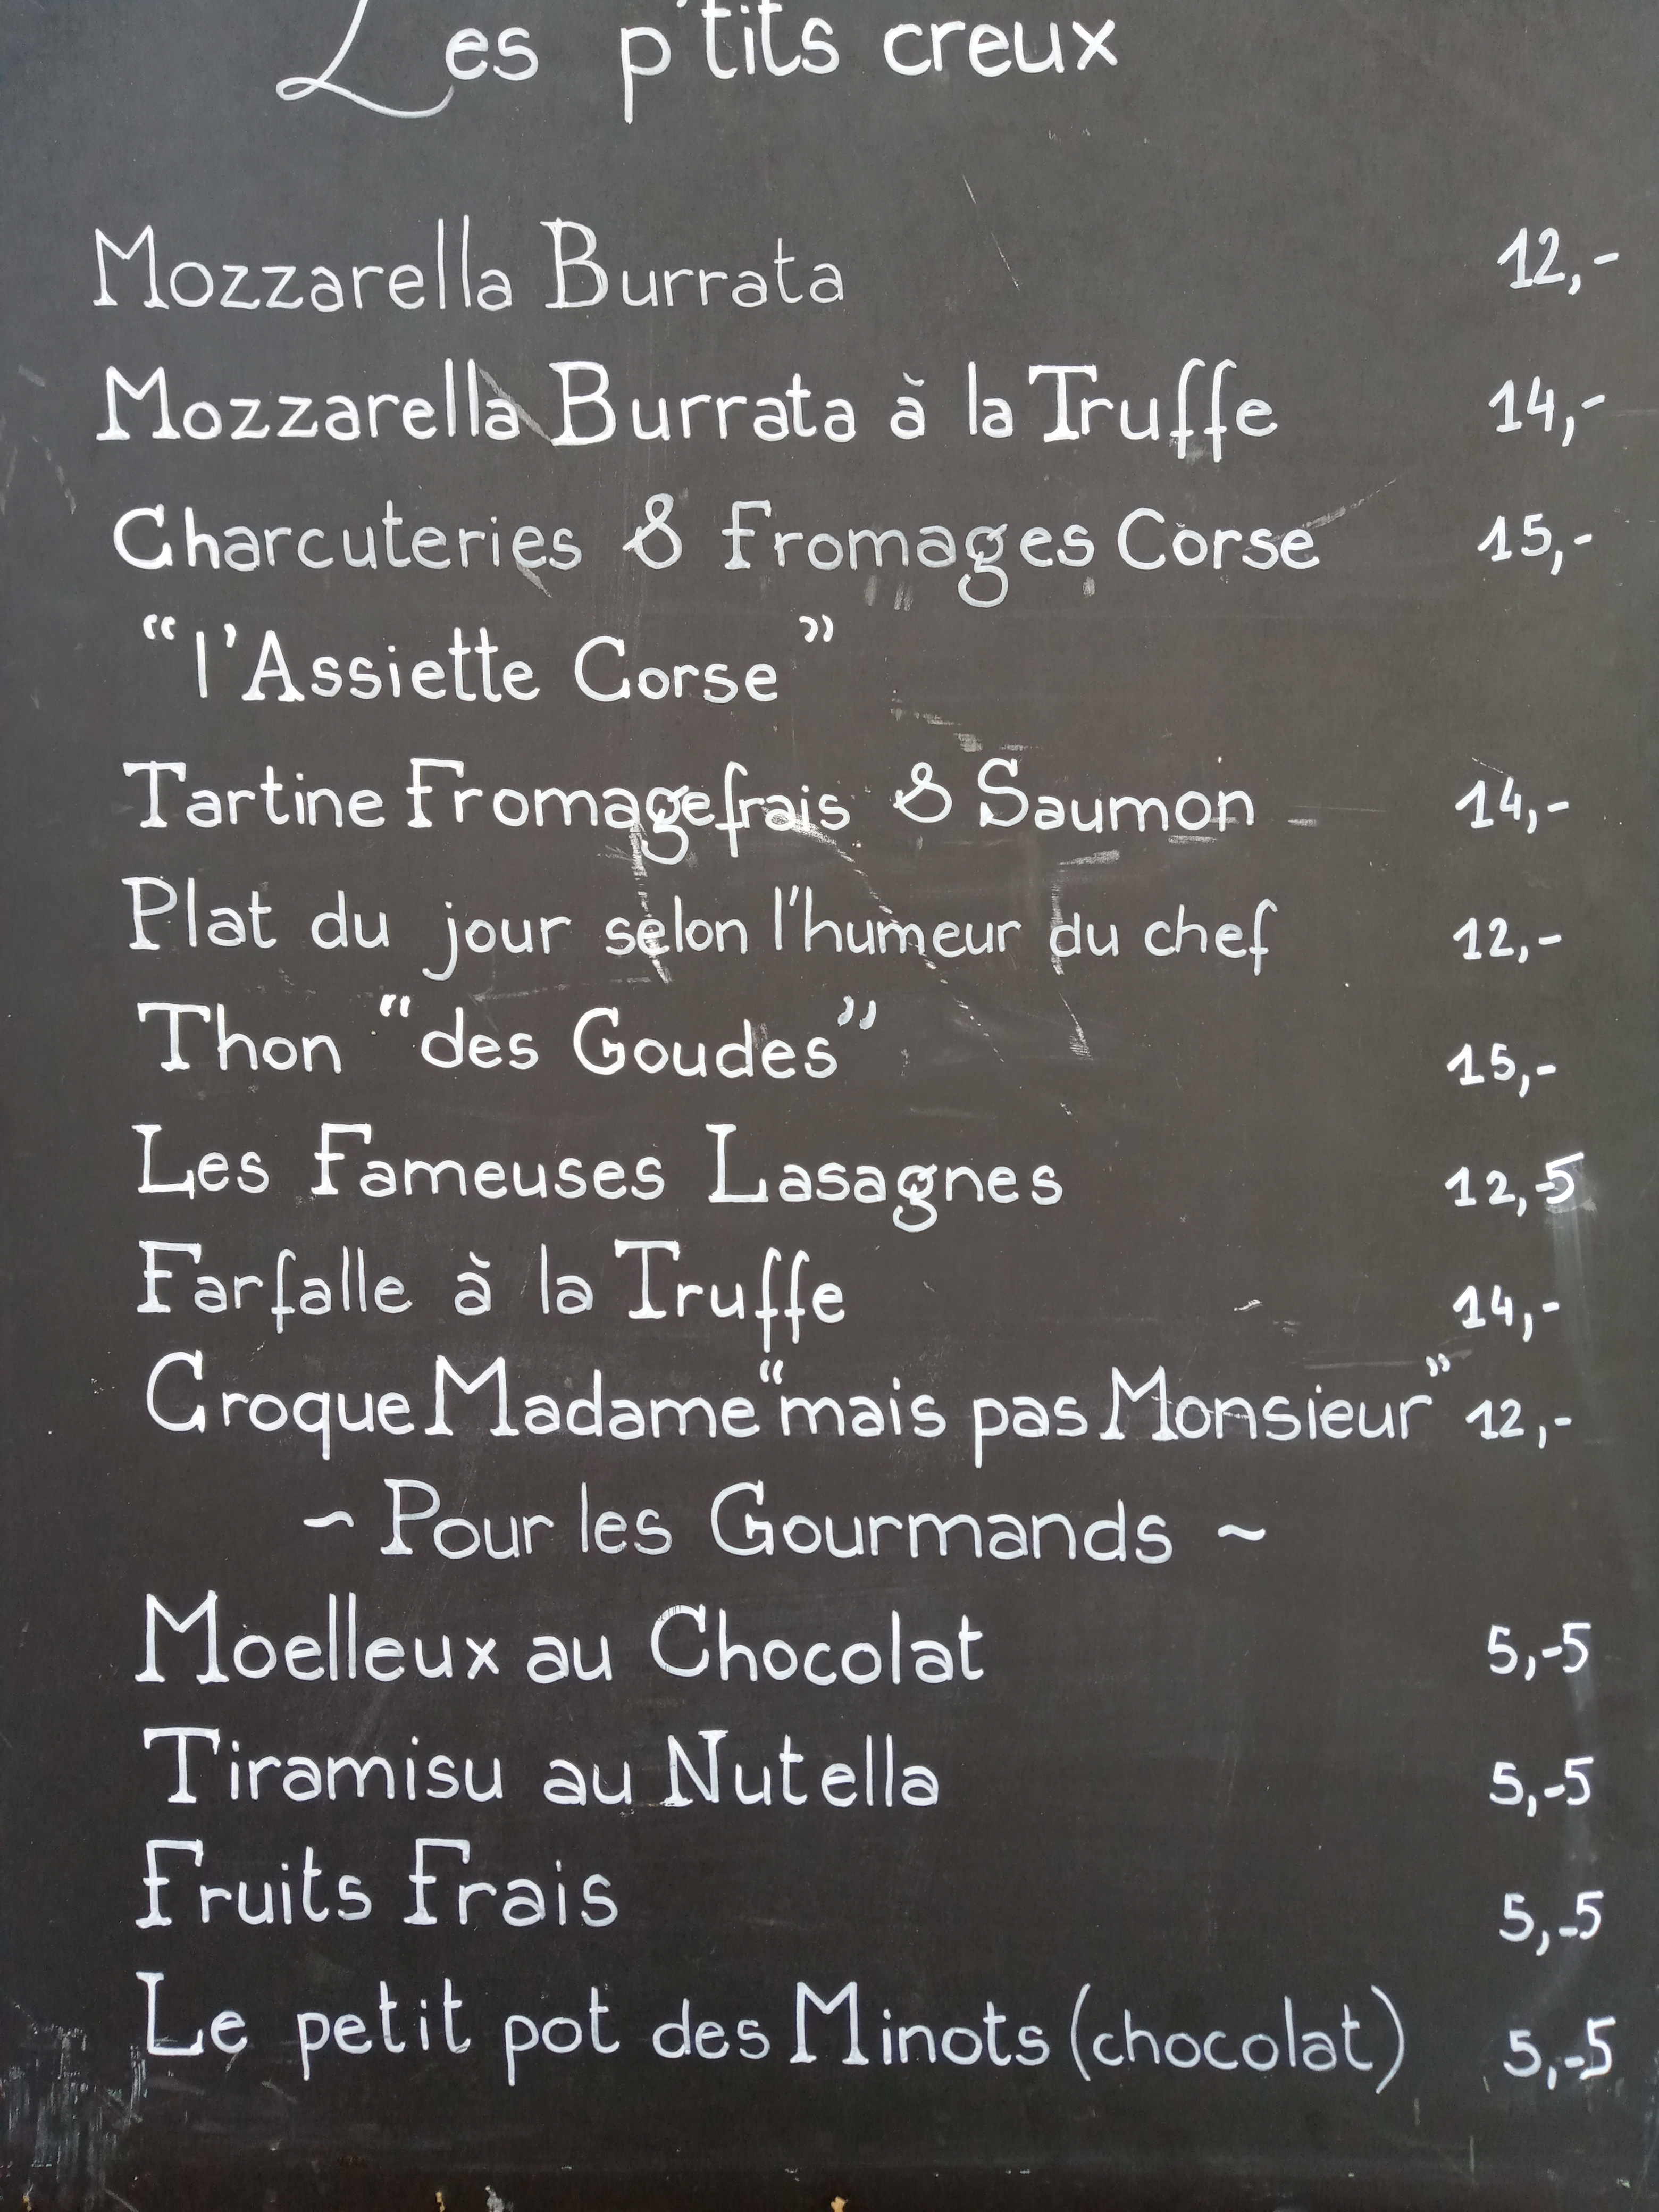 Les p'tits creux
Mozzarella Burrata 12,-
Mozzarella Burrata à la Truffe 14,-
Charcuteries & Fromages Corse 15,-
“l'Assiette Corse”
Tartine Fromage frais & Saumon 14,-
Plat du jour selon l'humeur du chef 12,-
Thon “des Goudes” 15,-
Les Fameuses Lasagnes 12,-5
Farfalle à la Truffe 14,-
Croque Madame “mais pas Monsieur” 12,-
~ Pour les Gourmands ~
Moelleux au Chocolat 5,-5
Tiramisu au Nutella 5,-5
Fruits Frais 5,-5
Le petit pot des Minots (chocolat) 5,-5